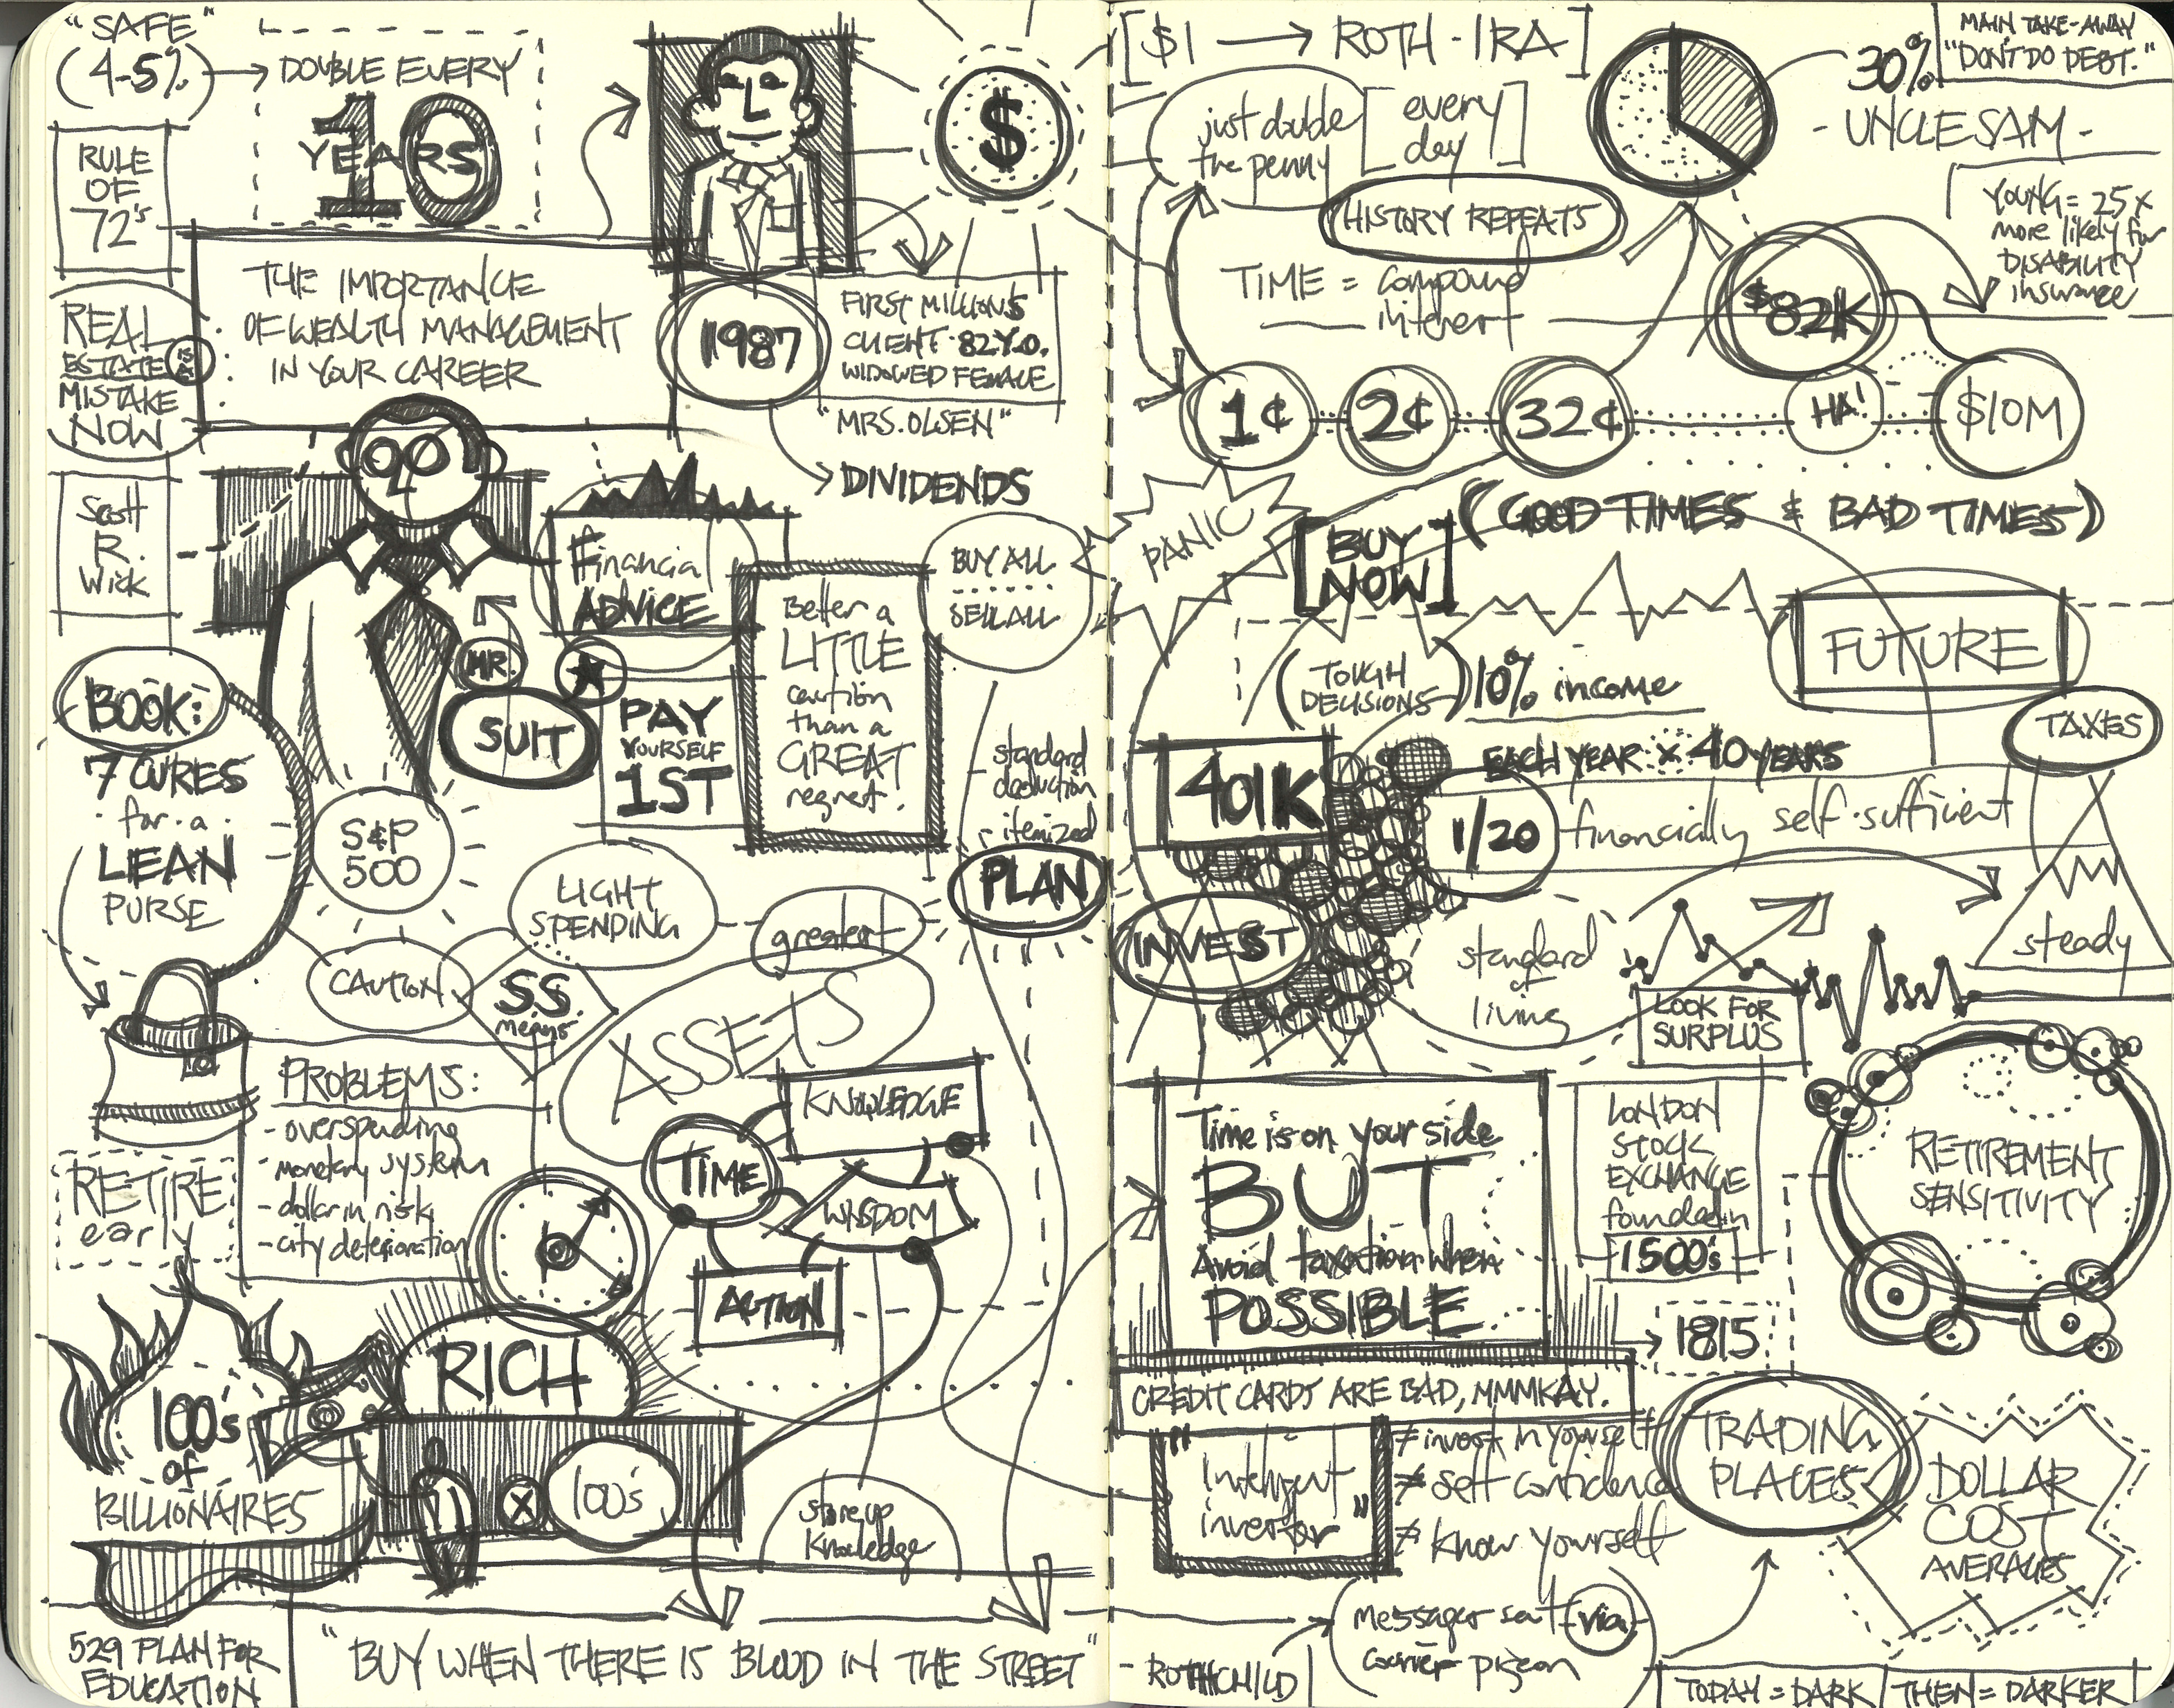 "SAFE"
(4-5%)
DOUBLE EVERY
10
YEARS
RULE
OF
72's
THE IMPORTANCE
OF WEALTH MANAGEMENT
IN YOUR CAREER
REAL
ESTATE
MISTAKE
NOW
1987
FIRST MILLIONS
CLIENT · 82 Y.O.
WIDOWED FEMALE
"MRS. OLSEN"
DIVIDENDS
$
Scott
R.
Wick
Financial
ADVICE
MR.
SUIT
PAY
YOURSELF
1ST
Better a
LITTLE
caution
than a
GREAT
regret.
BUY ALL
SELL ALL
BOOK:
7 CURES
· for · a ·
LEAN
PURSE
S&P
500
standard
deduction
itemized
PLAN
LIGHT
SPENDING
CAUTION
SS
means
greatest
ASSETS
KNOWLEDGE
TIME
WISDOM
ACTION
PROBLEMS:
- overspending
- monetary system
- dollar in risk
- city deterioration
RETIRE
early
RICH
100's
of
BILLIONAIRES
X
100's
store up
knowledge
529 PLAN FOR
EDUCATION
"BUY WHEN THERE IS BLOOD IN THE STREET"
[$1 → ROTH-IRA]
just double
the penny
[every
day]
HISTORY REPEATS
TIME = compound
interest
30%
- UNCLE SAM -
MAIN TAKE-AWAY
"DON'T DO DEBT."
YOUNG = 25x
more likely for
DISABILITY
insurance
$82K
1¢
2¢
32¢
HA!
$10M
PANIC
[BUY
NOW]
(GOOD TIMES & BAD TIMES)
FUTURE
(TOUGH
DECISIONS)
10% income
EACH YEAR x 40 YEARS
TAXES
401K
1/20 financially self-sufficient
INVEST
standard
of
living
steady
LOOK FOR
SURPLUS
Time is on your side
BUT
Avoid taxation when
POSSIBLE
LONDON
STOCK
EXCHANGE
foundation
1500's
1815
RETIREMENT
SENSITIVITY
CREDIT CARDS ARE BAD, MMMKAY.
"Intelligent
investor"
≠ invest in yourself
≠ self confidence
≠ know yourself
TRADING
PLACES
DOLLAR
COST
AVERAGES
- ROTHCHILD
messages sent via
carrier pigeon
TODAY = DARK
THEN = DARKER